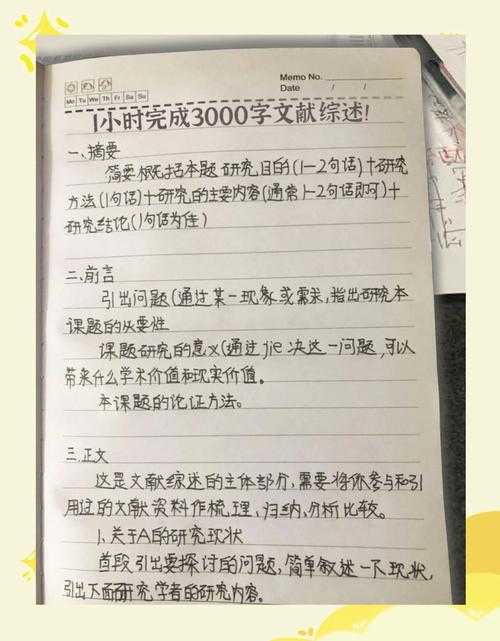 Memo No.
Mo Tu We Th Fr Sa Su
Date / /
1小时完成3000字文献综述!
一、摘要
简要概括本题研究目的(1—2句话)+研究
方法(1句话)+研究的主要内容(通常1-2句话即可)+
研究结论(1句话为佳)
二、前言
引出问题(通过某一现象或需求,指出研究本
课题的必要性
课题研究的意义(通过jie决这一问题,可以
带来什么学术价值和现实价值。
本课题的论证方法。
三.正文
这是文献综述的主体部分,需要将你参与和引
用过的文献资料作梳理,归纳,分析比较。
1、关于A的研究现状
首段引出要探讨的问题,简单叙述一下现状,
引出下面研究学者的研究内容。